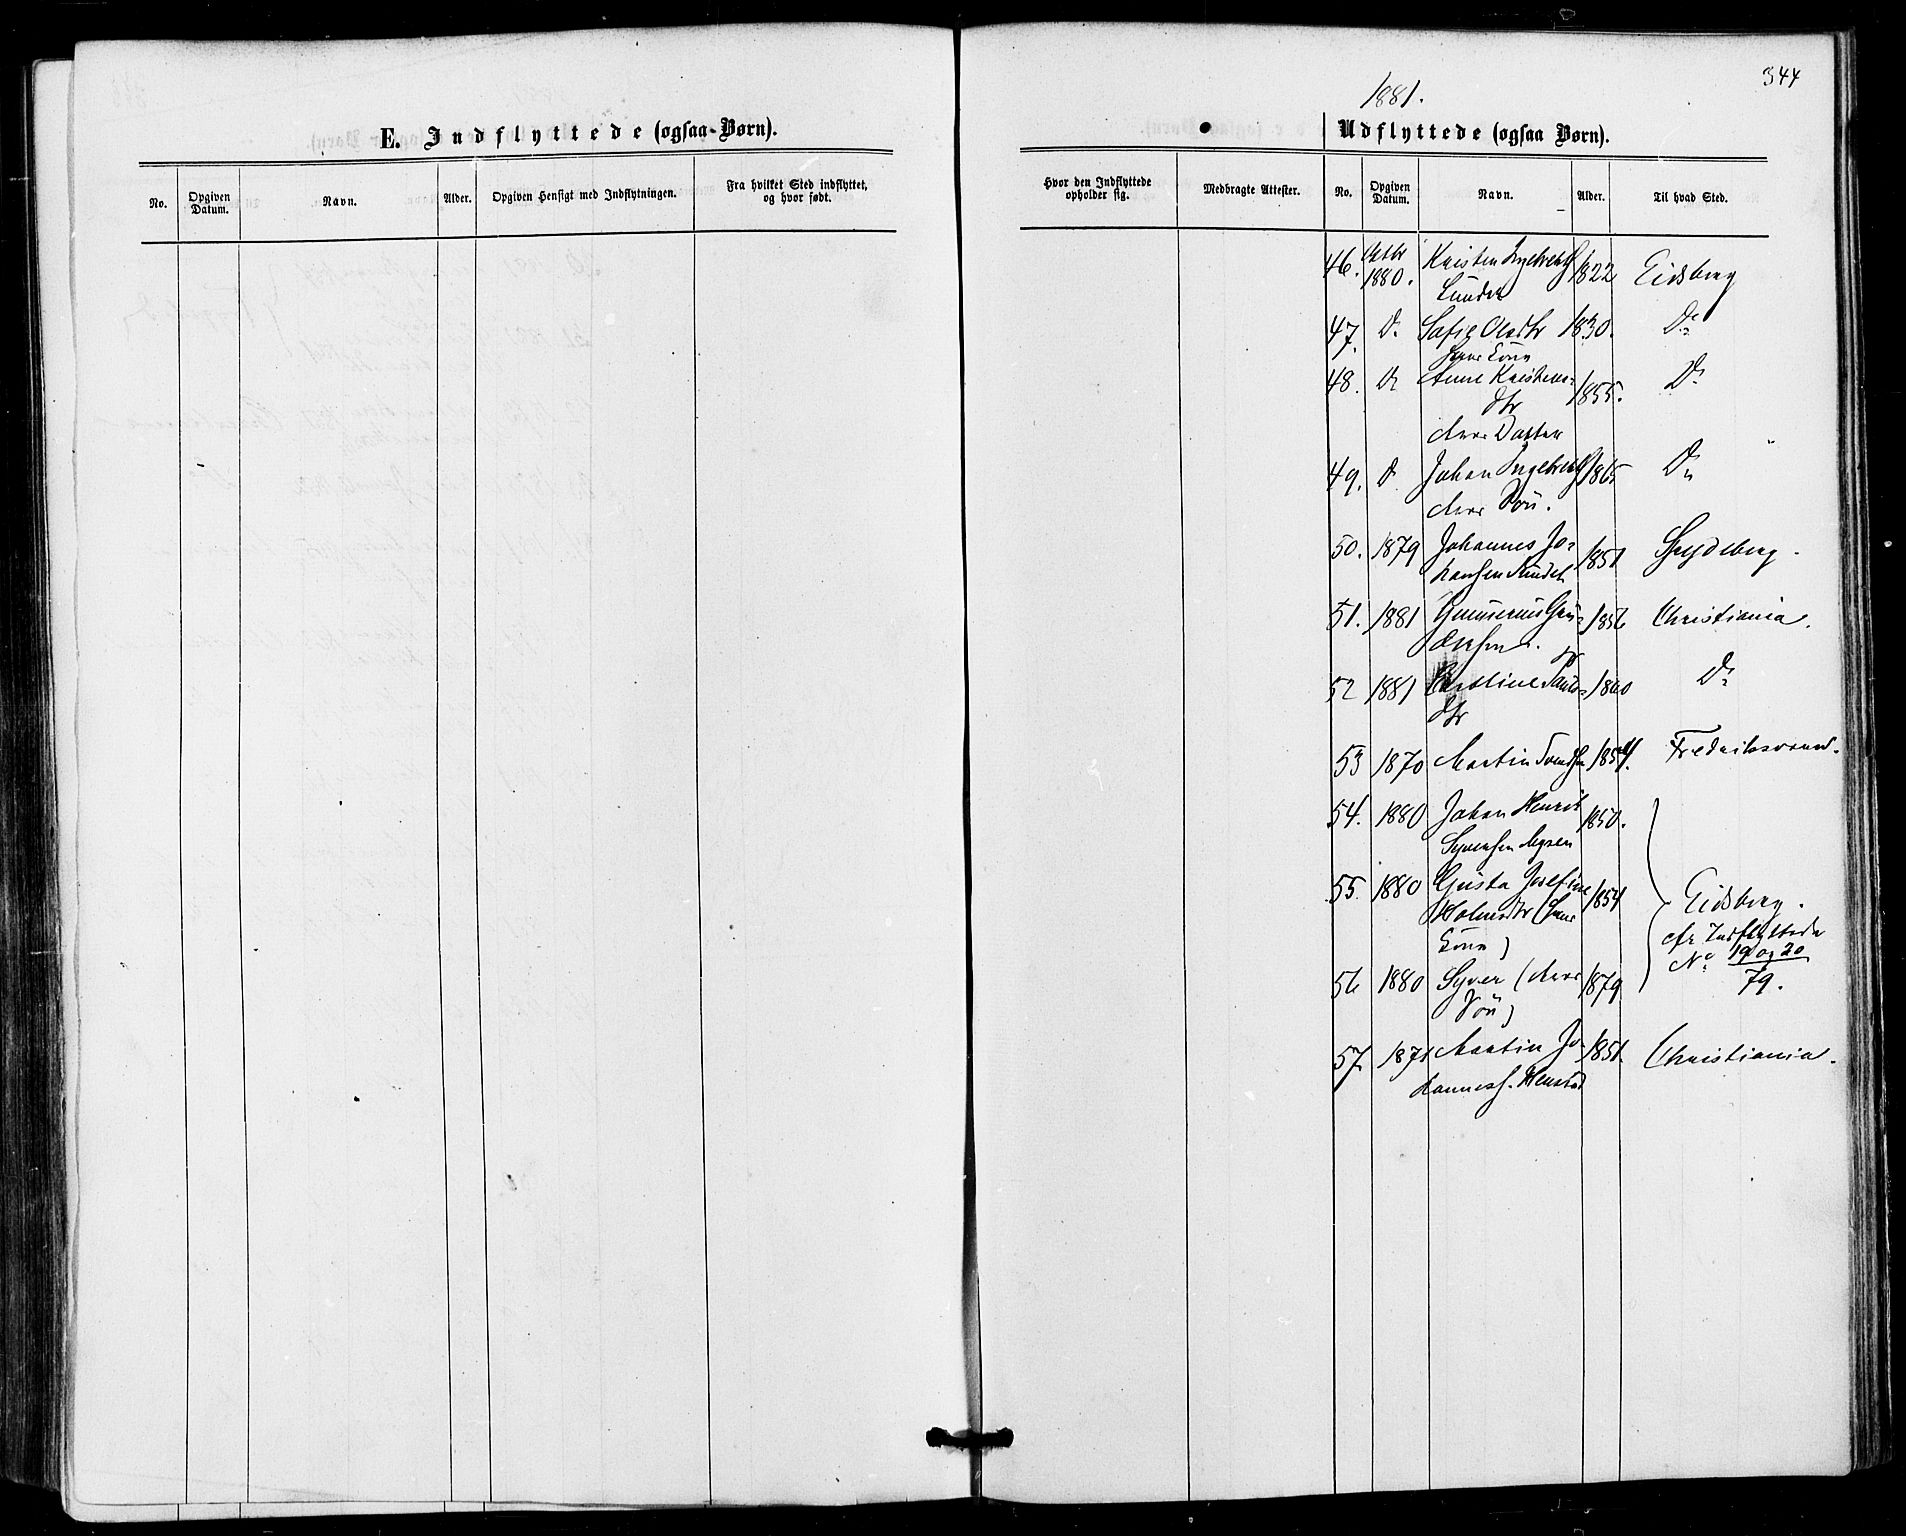 344
1881.
E. Indflyttede (ogsaa Børn).
Udflyttede (ogsaa Børn).
No. Opgiven Datum. Navn. Alder. Opgiven Hensigt med Indflytningen. Fra hvilket Sted indflyttet, og hvor født.
Hvor den Indflyttede opholder sig. Medbragte Attester. No. Opgiven Datum. Navn. Alder. Til hvad Sted.
46. Octbr 1880. Kristen Ingebretss 1822 Eidsberg
47. Do Sofie Olsdtr 1830. Do
hans Kone
48. Do Anne Kristens- 1855. Do
dtr
deres Datter
49. Do Johan Ingebretss 1865 Do
deres Søn.
50. 1879 Johannes Jo- 1851 Spydeberg.
hansen
51. 1881 Gunnerius 1856 Christiania.
52 1881 1860 Do
dtr
53 1870 Martin Svendsen 1854. Fredriksværn.
54. 1880 Johan Henrik 1850.
Syversen Mysen
55. 1880 Gusta Josefine 1854 Eidsberg.
(hans cfr Indflyttede
Kone) No 19 og 20
79.
56 1880 Syver (deres 1879
Søn)
57. 1871 Martin Jo- 1851. Christiania.
hanness.